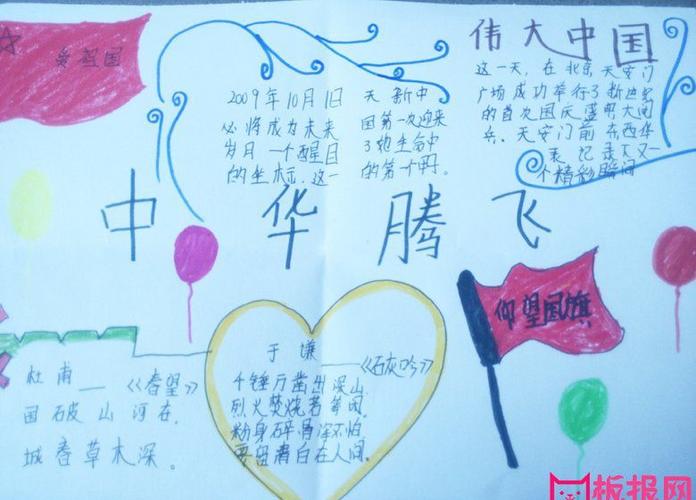 爱祖国
伟大中国
2009年10月1日
必将成为未来
岁月一个醒目
的坐标.这一
天新中
国第一次迎来
了她生命中
的第一个甲.
这一天，在北京天安门
广场成功举行了新世纪
的首次国庆盛大阅
兵。天安门前东西华
表记录下又一
个精彩瞬间
中华腾飞
仰望国旗
杜甫——《春望》
国破山河在，
城春草木深。
于谦——《石灰吟》
千锤万凿出深山
烈火焚烧若等闲.
粉身碎骨浑不怕
要留清白在人间.
板报网